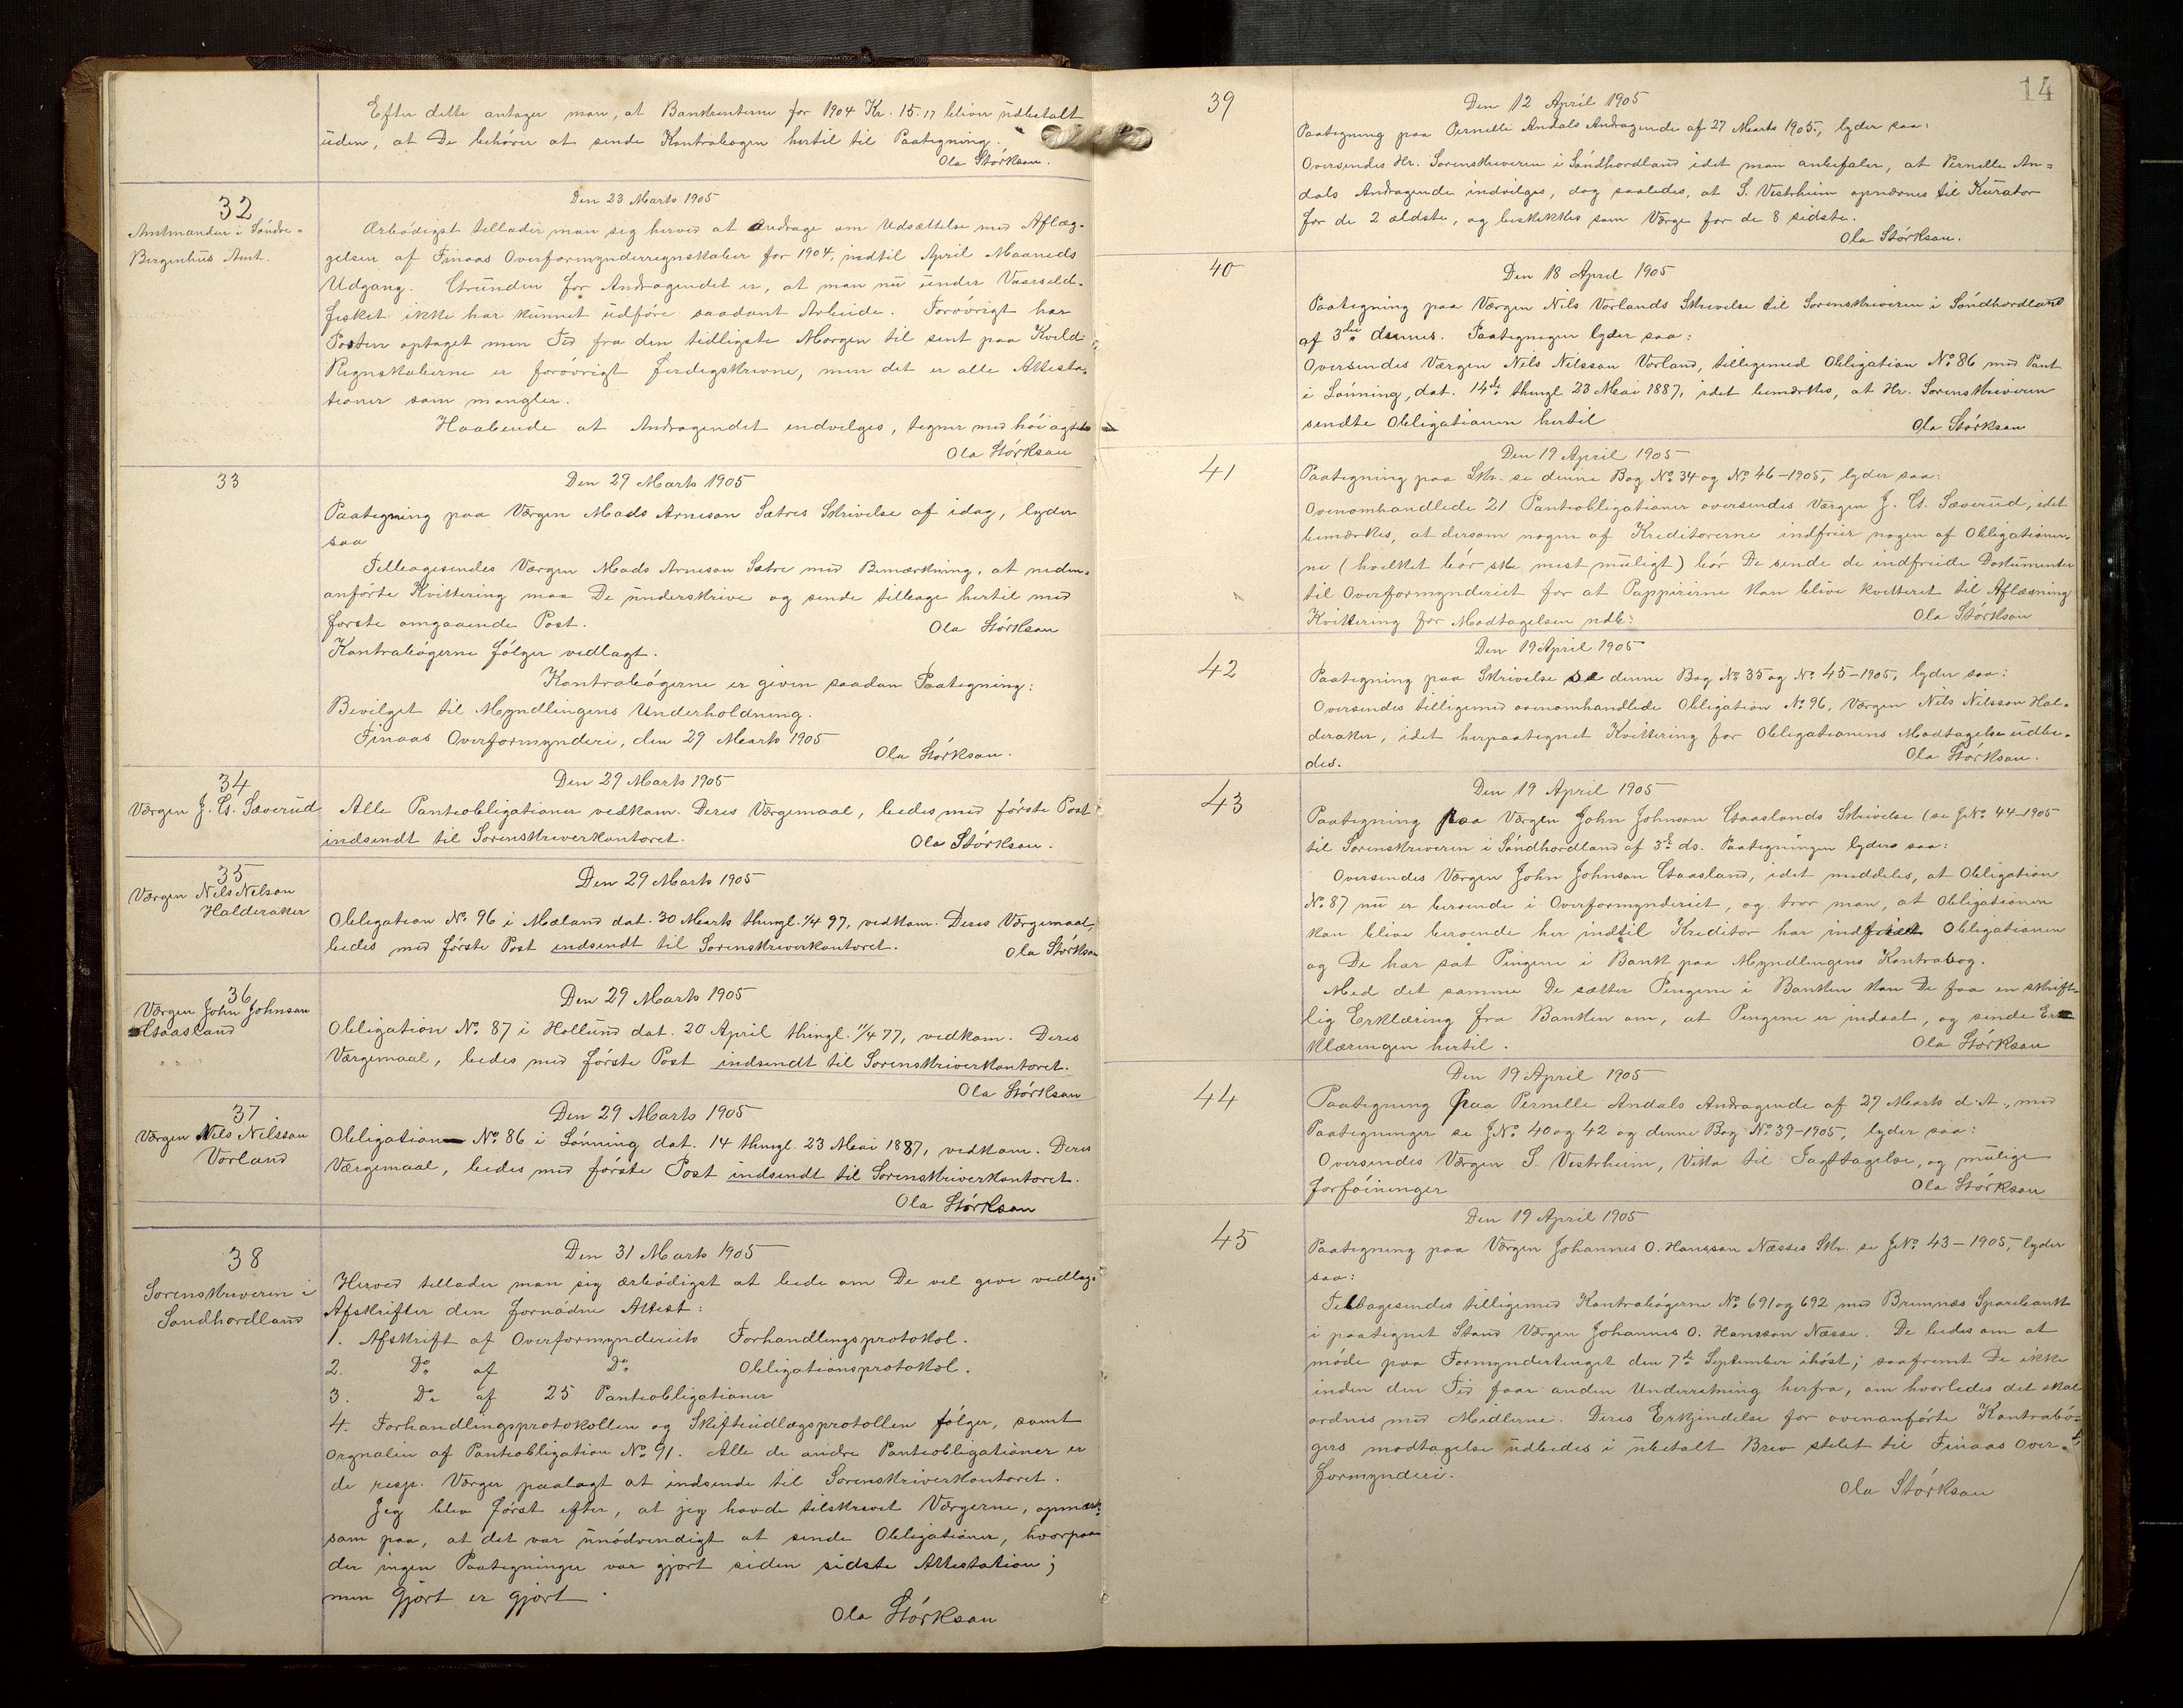 Efter dette antager man, at Bankrenterne for 1904 Kr. 15.17 bliver udbetalt
uden, at De behöver at sende Kontrabogen hertil til Paategning.
Ola Störkson.
32
Amtmanden i Söndre-
Bergenhus Amt.
Den 23 Marts 1905
Ærbödigst tillader man sig herved at andrage om Udsættelse med Aflæg-
gelsen af Finaas Overformynderregnskaber for 1904, indtil April Maaneds
Udgang. Grunden for Andragendet er, at man nu under Vaarsild-
fisket ikke har kunnet udföre saadant Arbeide. Forövrigt har
Posten optaget min Tid fra den tidligste Morgen til sent paa Kveld
Regnskaberne er forövrigt ferdigskrevne, men det er alle Attesta-
tioner som mangler.
Haabende at Andragendet indvilges, tegner med höiagtelse
Ola Störkson
33
Den 29 Marts 1905
Paategning paa Værgen Mads Arneson Sætres Skrivelse af idag, lyder
saa
Tilbagesendes Værgen Mads Arneson Sætre med Bemærkning, at neden-
anförte Kvittering maa De underskrive og sende tilbage hertil med
förste omgaaende Post.
Ola Störkson
Kontrabögerne fölger vedlagt.
Kontrabögerne er given saadan Paategning:
Bevilget til Myndlingens Underholdning.
Finaas Overformynderi, den 29 Marts 1905
Ola Störkson.
34
Værgen J. G. Sæverud
Den 29 Marts 1905
Alle Panteobligationer vedkom. Deres Værgemaal, bedes med förste Post
indsendt til Sorenskriverkontoret.
Ola Störkson.
35
Værgen Nils Nelson
Halderaker
Den 29 Marts 1905
Obligation No. 96 i Mæland dat. 30 Marts thingl. 1/4 97, vedkom. Deres Værgemaal,
bedes med förste Post indsendt til Sorenskriverkontoret.
Ola Störkson
36
Værgen John Johnson
Gaasland
Den 29 Marts 1905
Obligation No. 87 i Hollund dat. 20 April thingl. 11/4 77, vedkom. Deres
Værgemaal, bedes med förste Post indsendt til Sorenskriverkontoret.
Ola Störkson
37
Værgen Nils Nilsson
Vorland
Den 29 Marts 1905
Obligation No. 86 i Lönning dat. 14 thingl. 23 Mai 1887, vedkom. Deres
Værgemaal, bedes med förste Post indsendt til Sorenskriverkontoret.
Ola Störkson
38
Sorenskriveren i
Söndhordland
Den 31 Marts 1905
Herved tillader man sig ærbödigst at bede om De vil give vedlagt
Afskrifter den fornödne Attest:
1. Afskrift af Overformynderiets Forhandlingsprotokol.
2. Do. af Do. Obligationsprotokol.
3. Do. af 25 Panteobligationer
4. Forhandlingsprotokollen og Skifteudlægsprotollen fölger, samt
Orgnalen af Panteobligation No. 91. Alle de andre Panteobligationer er
de resp. Værger paalagt at indsende til Sorenskriverkontoret.
Jeg blev först efter, at jeg havde tilskrevet Værgerne, opmærk-
som paa, at det var unödvendigt at sende Obligationer, hvorpaa
der ingen Paategninger var gjort siden sidste Attestation;
men Gjort er gjort.
Ola Störkson
14
39
Den 12 April 1905
Paategning paa Pernille Andals Andragende af 27 Marts 1905, lyder saa:
Oversendes Hr. Sorenskriveren i Söndhordland idet man anbefaler, at Pernille An-
dals Andragende indvilges, dog saaledes, at S. Vestrheim opnævnes til Kurator
for de 2 ældste, og beskikkes som Værge for de 8 sidste.
Ola Störkson.
40
Den 18 April 1905
Paategning paa Værgen Nils Vorlands Skrivelse til Sorenskriveren i Söndhordland
af 3die dennes. Paategningen lyder saa:
Oversendes Værgen Nils Nilsson Vorland, tilligemed Obligation No. 86 med Pant
i Lönning, dat. 14de thingl 23 Mai 1887, idet bemærkes, at Hr. Sorenskriveren
sendte Obligationen hertil
Ola Störkson
41
Den 19 April 1905
Paategning paa Skr. se denne Bog No. 34 og No. 46-1905, lyder saa:
Ovenomhandlede 21 Panteobligationer oversendes Værgen J. G. Sæverud, idet
bemærkes, at dersom nogen af Kreditorerne indfrier nogen af Obligationer-
ne (hvelket bör ske mest muligt) bör De sende de indfriede Dokumenter
til Overformynderiet for at Pappirirne kan blive kvitteret til Aflæsning
Kvittering for Modtagelsen udb:
Ola Störkson
42
Den 19 April 1905
Paategning paa Skrivelse se denne Bog No. 35 og No. 45-1905, lyder saa:
Oversendes tilligemed ovenomhandlede Obligation No. 96, Værgen Nils Nilsson Hal-
deraker, idet herpaategnet Kvittering for Obligationens Modtagelse udbe-
des.
Ola Störkson.
43
Den 19 April 1905
Paategning paa Værgen John Johnson Gaaslands Skrivelse (se JNo. 44-1905
til Sorenskriveren i Söndhordland af 3die ds. Paategningen lyder saa:
Oversendes Værgen John Johnson Gaasland, idet meddeles, at Obligation
No. 87 nu er beroende i Overformynderiet, og tror man, at Obligationen
kan blive beroende her indtil Kreditor har indfriet Obligationen
og De har sat Pingene i Bank paa Myndlingens Kontrabog.
Med det samme De sætter Pengene i Banken kan De faa en skrift-
lig Erklæring fra Banken om, at Pingene er indsat, og sende Er-
klæringen hertil.
Ola Störkson
44
Den 19 April 1905
Paategning paa Pernille Andals Andragende af 27 Marts d.A., med
Paategninger se JNo. 40 og 42 og denne Bog No. 39-1905, lyder saa:
Oversendes Værgen S. Vestrheim, Vika til Iagttagelse, og mulige
forföininger
Ola Störkson
45
Den 19 April 1905
Paategning paa Værgen Johannes O. Hansson Næsses Skr. se JNo. 43-1905, lyder
saa:
Tilbagesendes tilligemed Kontrabögerne No. 691 og 692 med Bremnes Sparebank
i paategnet Stand Værgen Johannes O. Hansson Næsse. De bedes om at
möde paa Formyndertinget den 7de September ihöst; saafremt De ikke
inden den Tid faar anden Underretning herfra, om hvorledes det skal
ordnis med Midlerne. Deres Erkjendelse for ovenanförte Kontrabö-
gers modtagelse udbedes i ubetalt Brev stilet til Finaas Over-
formynderi.
Ola Störkson